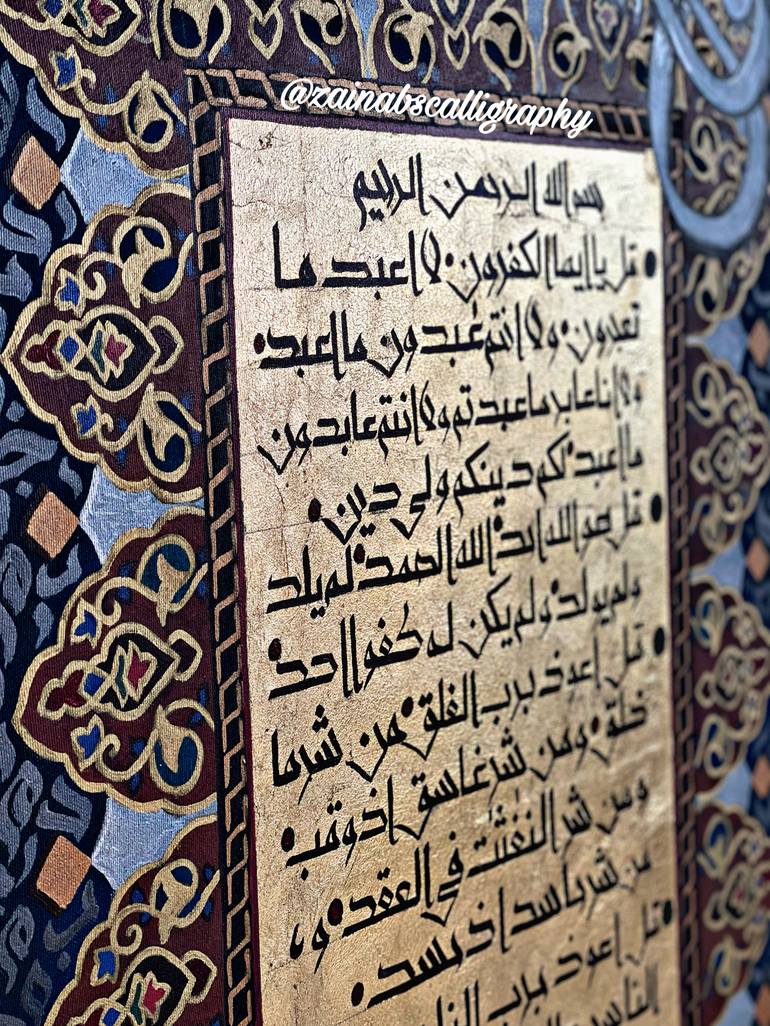 @zainabscalligraphy
بسم الله الرحمن الرحيم
قل يا ايها الكفرون • لا اعبد ما
تعبدون • ولا انتم عبدون ما اعبد •
ولا انا عابد ما عبدتم ولا انتم عابدون
ما اعبد • لكم دينكم ولي دين •
قل هو الله احد • الله الصمد • لم يلد
ولم يولد • ولم يكن له كفوا احد •
قل اعوذ برب الفلق • من شر ما
خلق • ومن شر غاسق اذ وقب •
ومن شر النفثت في العقد • و
من شر حاسد اذ حسد •
قل اعوذ برب الناس
الناس